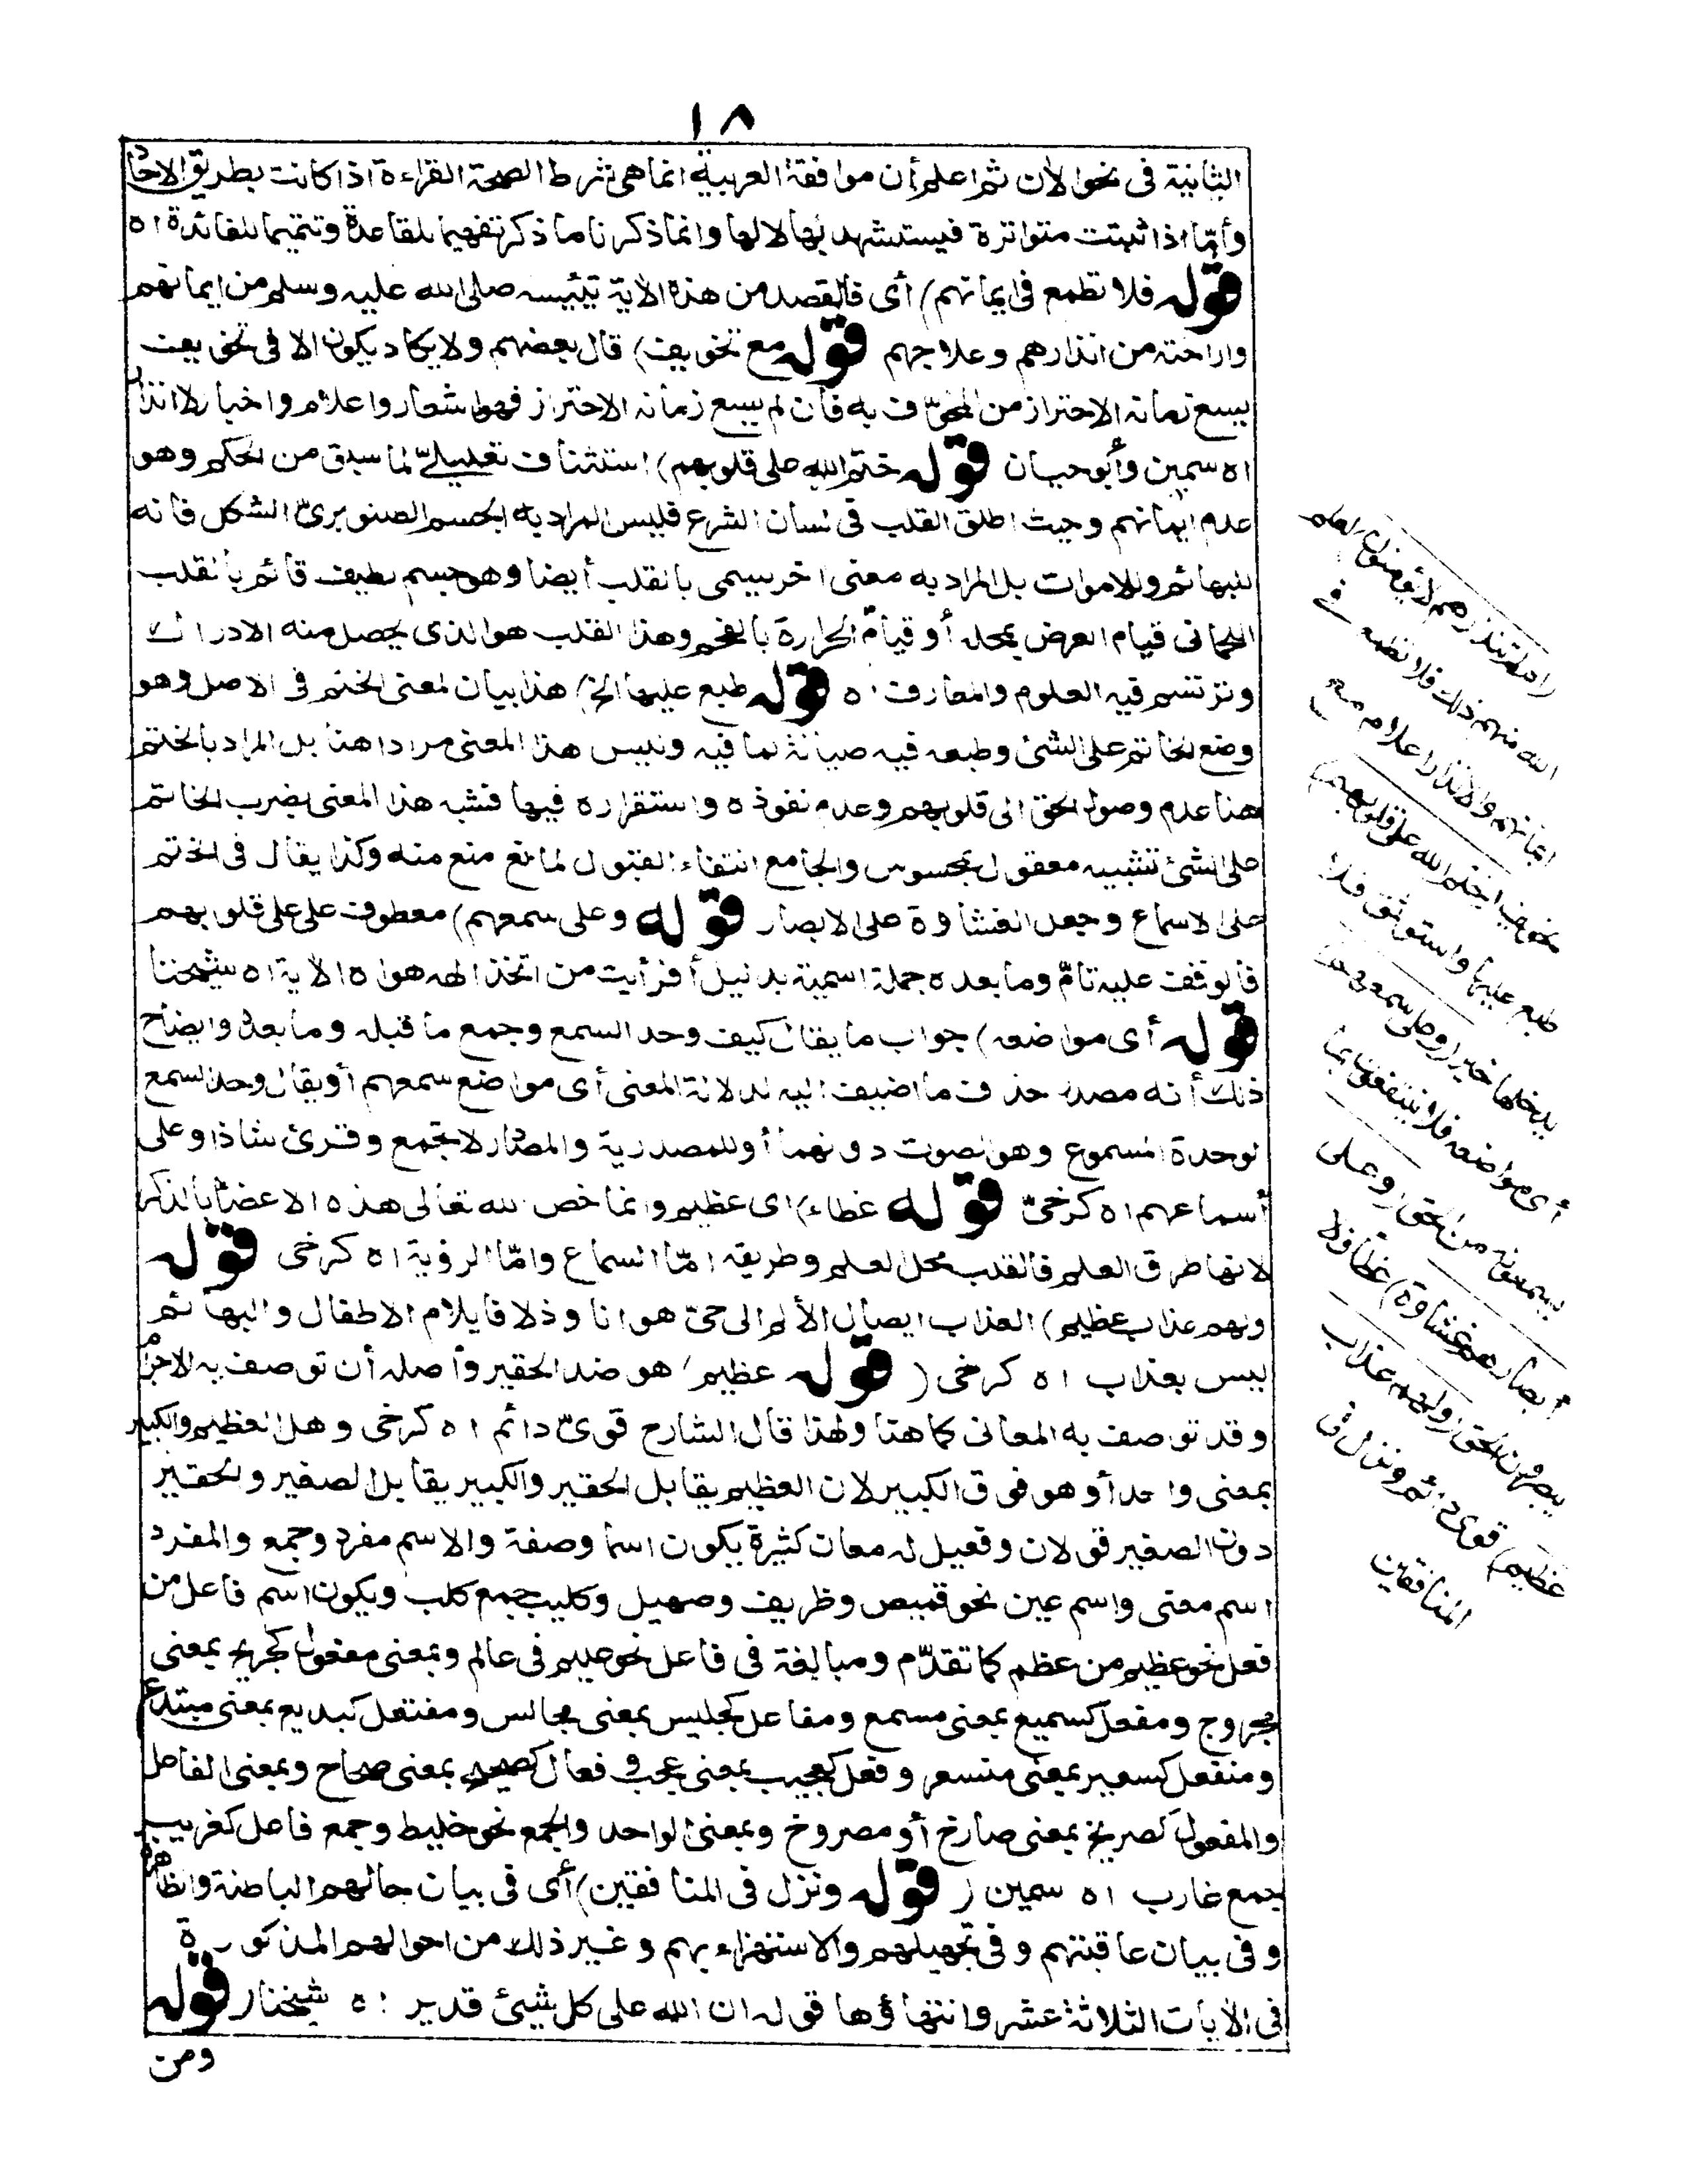 ١٨
الثانية فى نحو الآن ثم اعلم أن موافقة العربية انما هى شرط لصحة القراءة اذا كانت بطريق الآحاد
وأمّا اذا ثبتت متواترة فيستشهد بها لا لها وانما ذكرنا ما ذكر تفهيما للقاعدة وتتميما للفائدة اه
قوله فلا تطمع فى ايمانهم) أى فالقصد من هذه الآية تيئيسه صلى الله عليه وسلم من ايمانهم
واراحته من انذارهم وعلاجهم قوله مع تخويف) قال بعضهم ولا يكاد يكون الا فى تخويف
يسع زمانه الاحتراز من المخوّف به فان لم يسع زمانه الاحتراز فهو اشعار واعلام واخبار لا انذار
اه سمين وأبو حيان قوله ختم الله على قلوبهم) استئناف تعليلىّ لما سبق من الحكم وهو
عدم ايمانهم وحيث اطلق القلب فى لسان الشرع فليس المراد به الجسم الصنوبرىّ الشكل فانه
للبهائم وللاموات بل المراد به معنى اخر يسمى بالقلب أيضا وهو جسم لطيف قائم بالقلب
اللحمانى قيام العرض بمحله أو قيام الحرارة بالفحم وهذا القلب هو الذى يحصل منه الادراك
وترتسم فيه العلوم والمعارف اه قوله طبع عليها الخ) هذا بيان لمعنى الختم فى الاصل وهو
وضع الخاتم على الشئ وطبعه فيه صيانة لما فيه وليس هذا المعنى مرادا هنا بل المراد بالختم
هنا عدم وصول الحق الى قلوبهم وعدم نفوذه واستقراره فيها فشبه هذا المعنى بضرب الخاتم
على الشئ تشبيه معقول بمحسوس والجامع انتفاء القبول لمانع منع منه وكذا يقال فى الختم
على الاسماع وجعل الغشاوة على الابصار قوله وعلى سمعهم) معطوف على على قلوبهم
فالوقف عليه تامّ وما بعده جملة اسمية بدليل أفرأيت من اتخذ الهه هواه الآية اه شيخنا
قوله أى مواضعه) جواب ما يقال كيف وحد السمع وجمع ما قبله وما بعده وايضاح
ذلك أنه مصدر حذف ما اضيف اليه لدلالة المعنى أى مواضع سمعهم أو يقال وحد السمع
لوحدة المسموع وهو الصوت دونهما أو للمصدرية والمصادر لا تجمع وقرئ شاذا وعلى
أسماعهم اه كرخىّ قوله غطاء) اى عظيم وانما خص الله تعالى هذه الاعضاء بالذكر
لانها طرق العلم فالقلب محل العلم وطريقه امّا السماع وامّا الرؤية اه كرخى قوله
ولهم عذاب عظيم) العذاب ايصال الألم الى حىّ هوانا وذلا فايلام الاطفال والبهائم
ليس بعذاب اه كرخى (قوله عظيم) هو ضد الحقير وأصله أن توصف به الاجرام
وقد توصف به المعانى كما هنا ولهذا قال الشارح قوىّ دائم اه كرخى وهل العظيم والكبير
بمعنى واحد أو هو فوق الكبير لان العظيم يقابل الحقير والكبير يقابل الصغير والحقير
دون الصغير قولان وفعيل له معان كثيرة يكون اسما وصفة والاسم مفرد وجمع والمفرد
اسم معنى واسم عين نحو قميص وظريف وصهيل وكليب جمع كلب ويكون اسم فاعل من
فعل نحو عظيم من عظم كما تقدّم ومبالغة فى فاعل نحو عليم فى عالم وبمعنى مفعول كجريح بمعنى
مجروح ومفعل كسميع بمعنى مسمع ومفاعل كجليس بمعنى مجالس ومفتعل كبديع بمعنى مبتدع
ومنفعل كسعير بمعنى منسعر وفعل كعجيب بمعنى عجب وفعال كصحيح بمعنى صحاح وبمعنى الفاعل
والمفعول كصريخ بمعنى صارخ أو مصروخ وبمعنى الواحد والجمع نحو خليط وجمع فاعل كغريب
جمع غارب اه سمين (قوله ونزل فى المنافقين) أى فى بيان حالهم الباطنة والظاهرة
وفى بيان عاقبتهم وفى تجهيلهم والاستهزاء بهم وغير ذلك من احوالهم المذكورة
فى الآيات الثلاثة عشر وانتهاؤها قوله ان الله على كل شيئ قدير اه شيخنا (قوله
ومن
(ام لم تنذرهم لا يؤمنون) لعلم
الله منهم ذلك فلا تطمع فى
ايمانهم والانذار اعلام مع
تخويف (ختم الله على قلوبهم)
طبع عليها واستوثق فلا
يدخلها خير (وعلى سمعهم)
أى مواضعه فلا ينتفعون بما
يسمعونه من الحق (وعلى
أبصارهم غشاوة) غطاء فلا
يبصرون الحق (ولهم عذاب
عظيم) قوى دائم ونزل فى
المنافقين